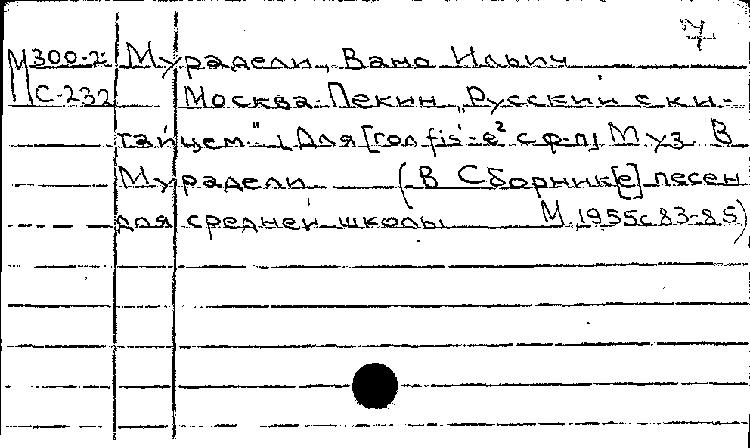 7
М300-2 Мурадели, Вано Ильич
С-232 Москва-Пекин „Русский с ки-
тайцем" [Для [гол fis'-e² с ф-п] Муз В
Мурадели (В Сборник[е] песен
для средней школы М, 1955 с 83-85)